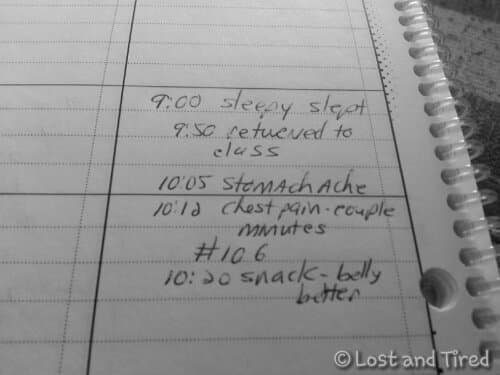 9:00 sleepy slept
9:50 returned to
class
10:05 stomach ache
10:12 chest pain - couple
minutes
#106
10:20 snack - belly
better
© Lost and Tired